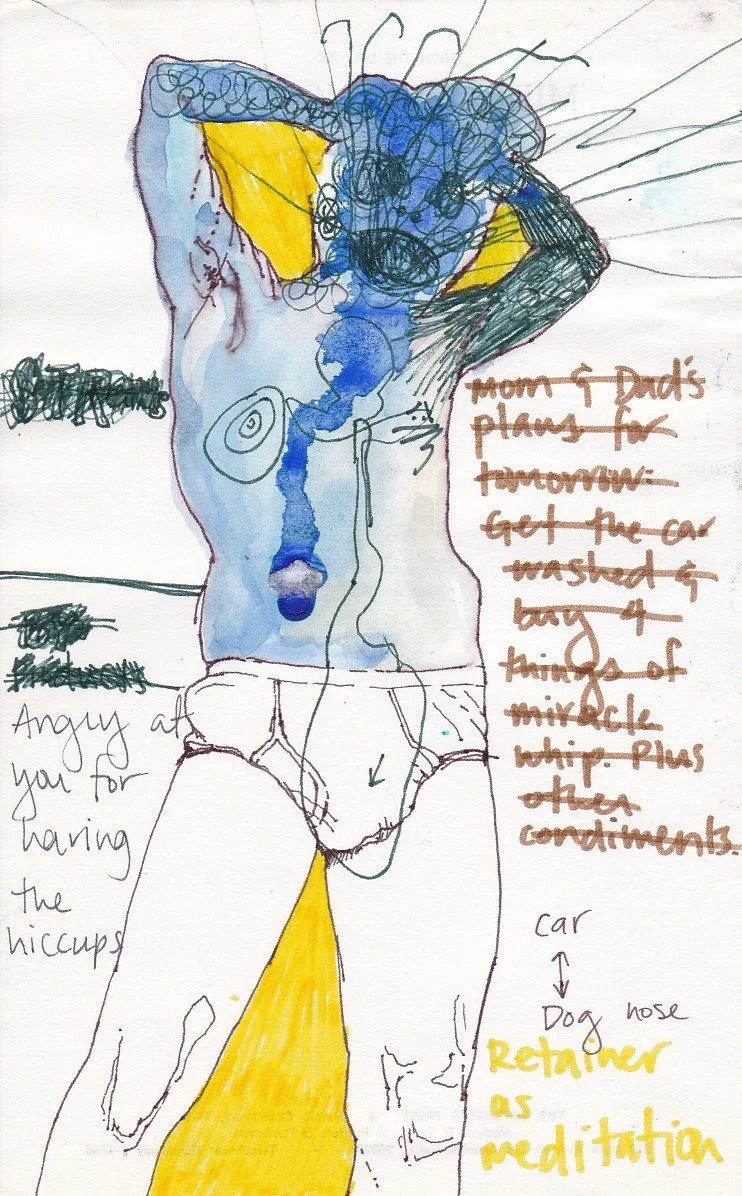 Mom & Dad's
plans for
tomorrow:
Get the car
washed &
buy 4
things of
miracle
whip. Plus
other
condiments.
Angry at
you for
having
the
hiccups
car
Dog nose
Retainer
as
meditation